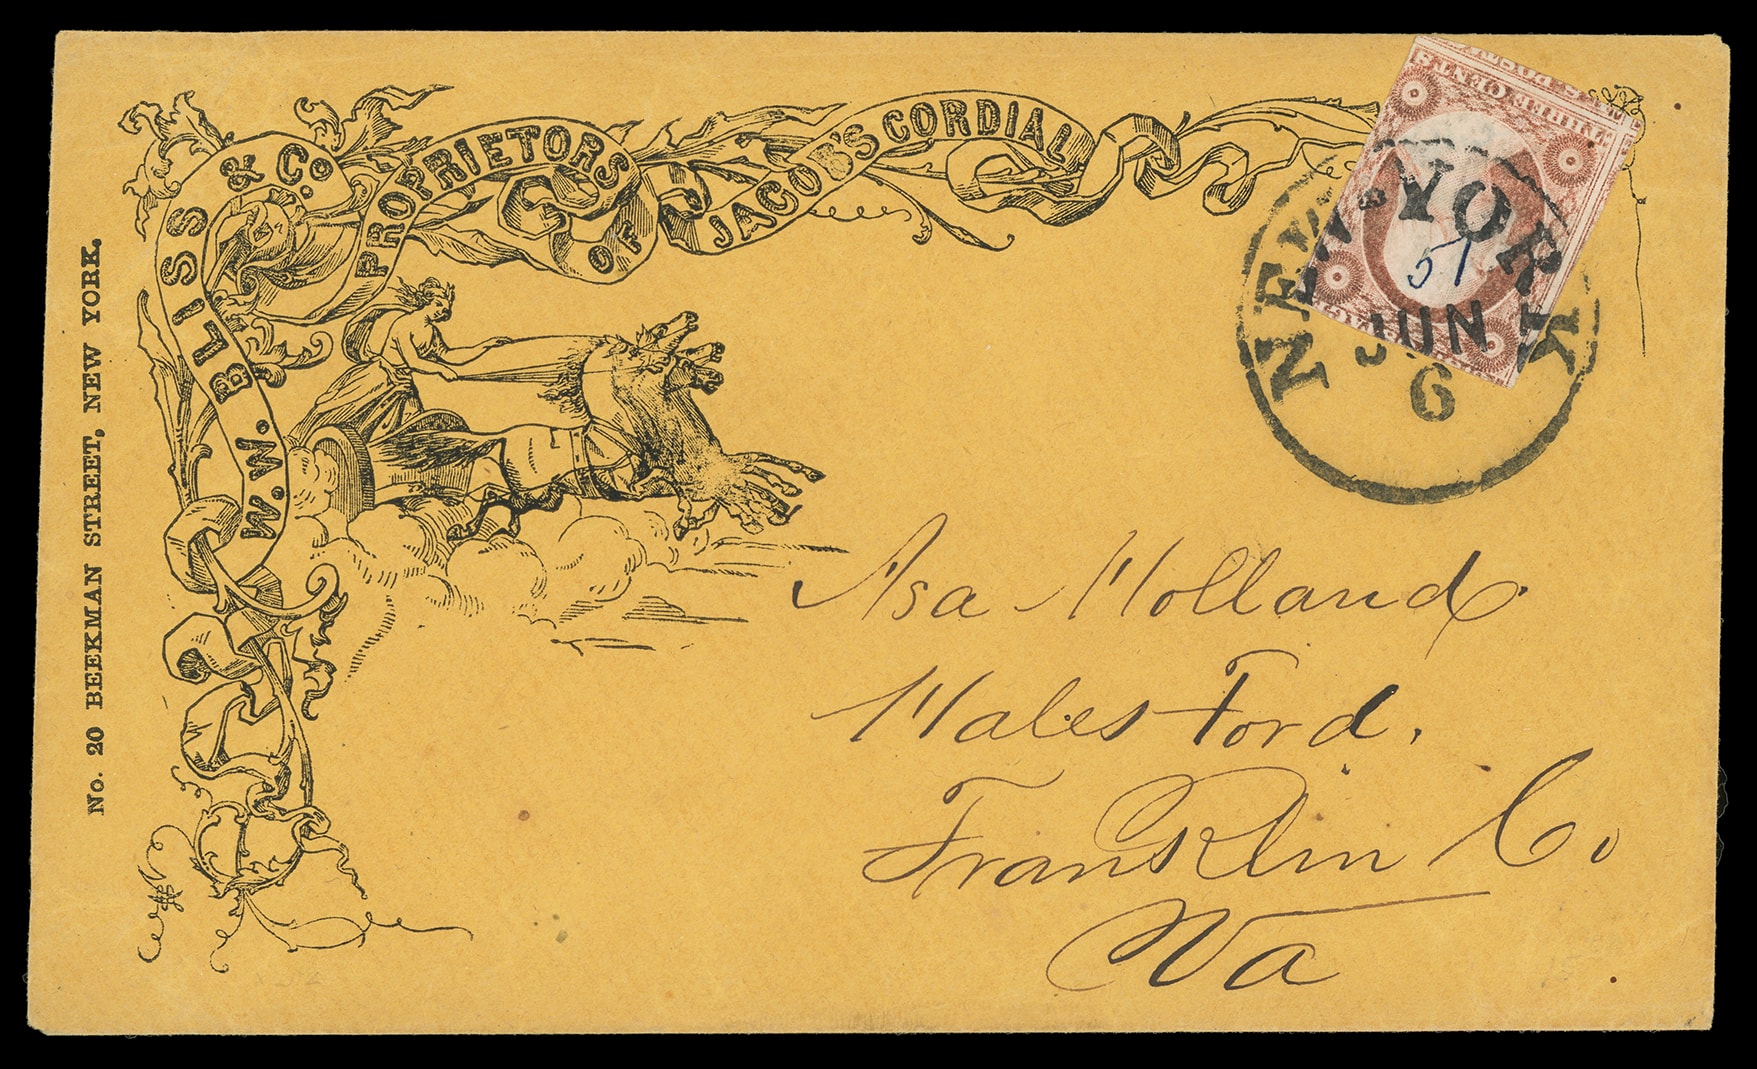 W.W. BLISS & Co. PROPRIETORS OF JACOB'S CORDIAL
No. 20 BEEKMAN STREET, NEW YORK.
THREE CENTS
NEW-YORK
51
JUN
6
Asa Holland
Hales Ford.
Franklin Co
Va